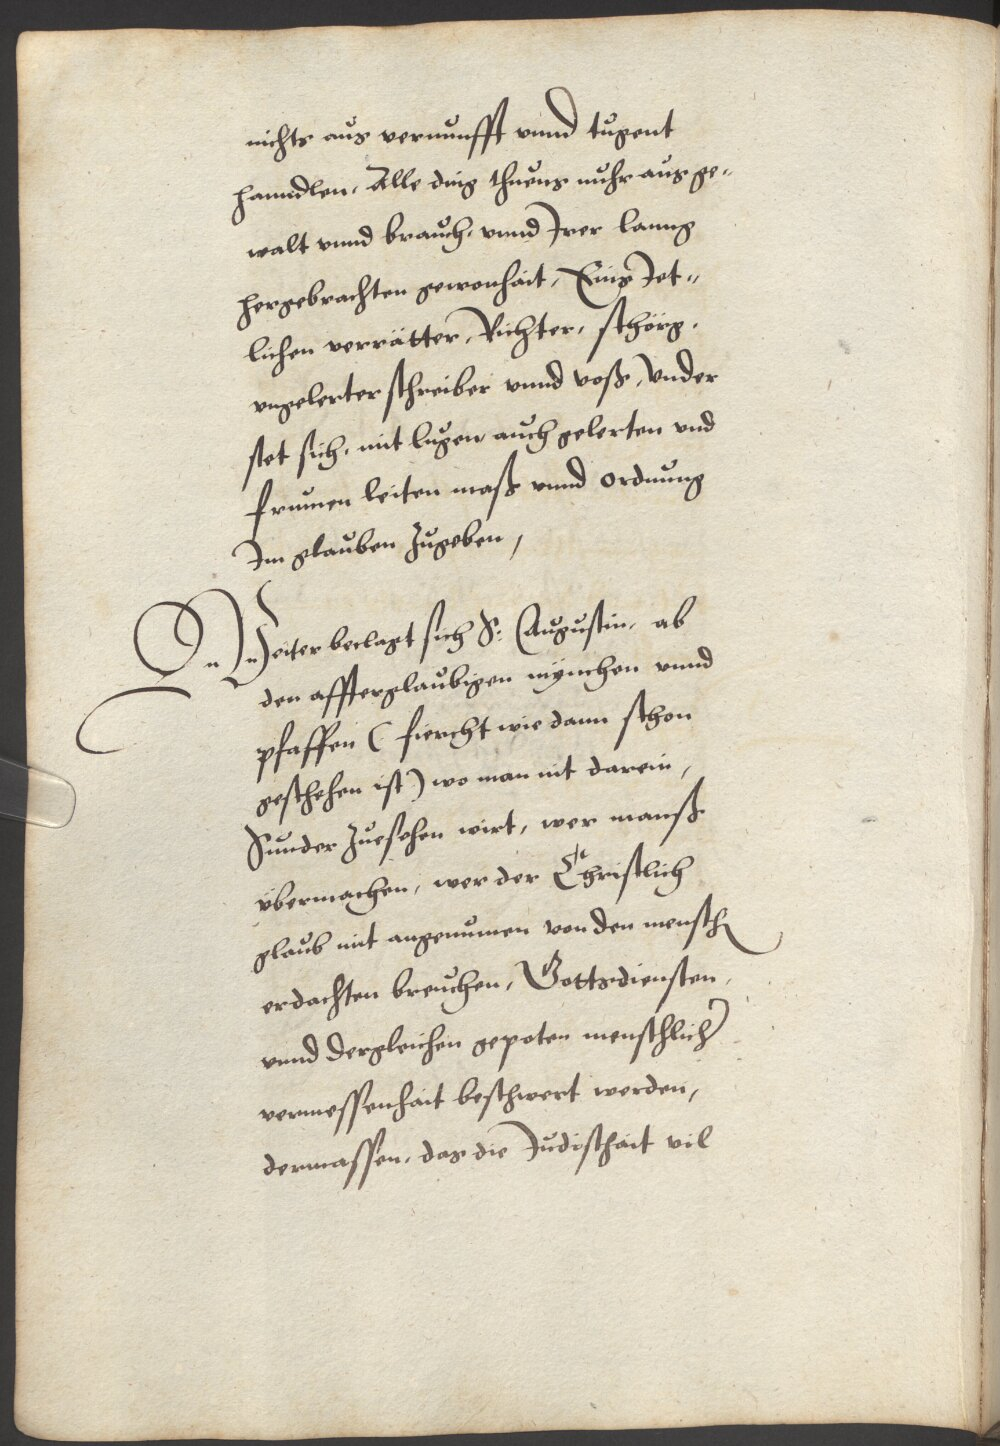 nichts aus vernunfft vnnd tugent
hanndlen. Alle ding thuens nuhr aus ge„
walt vnnd brauch. vnnd Irer lanng
hergebrachten gewonhait, Ains Iet„
lichen verrätter, Richter, schörg.
vngelerter schreiber vnnd roß, vnder
stet sich. mit lugen auch gelerten vnd
frumen leiten maß vnnd ordnung
Im glauben zugeben,
Weiter beclagt sich S: Augustin. ab
den affterglaubigen mÿnchen vnnd
pfaffen (fiercht wie dann schon
geschehen ist) wo man nit darein,
Sunder zuesehen wirt, wer manß
übermachen, wer der Christlich
glaub mit angenumen von den mensch
erdachten breuchen, Gottsdiensten,
vnnd dergleichen gepoten menschlicher
vermessenhait beschwert werden,
dermassen. das die Judischait vil